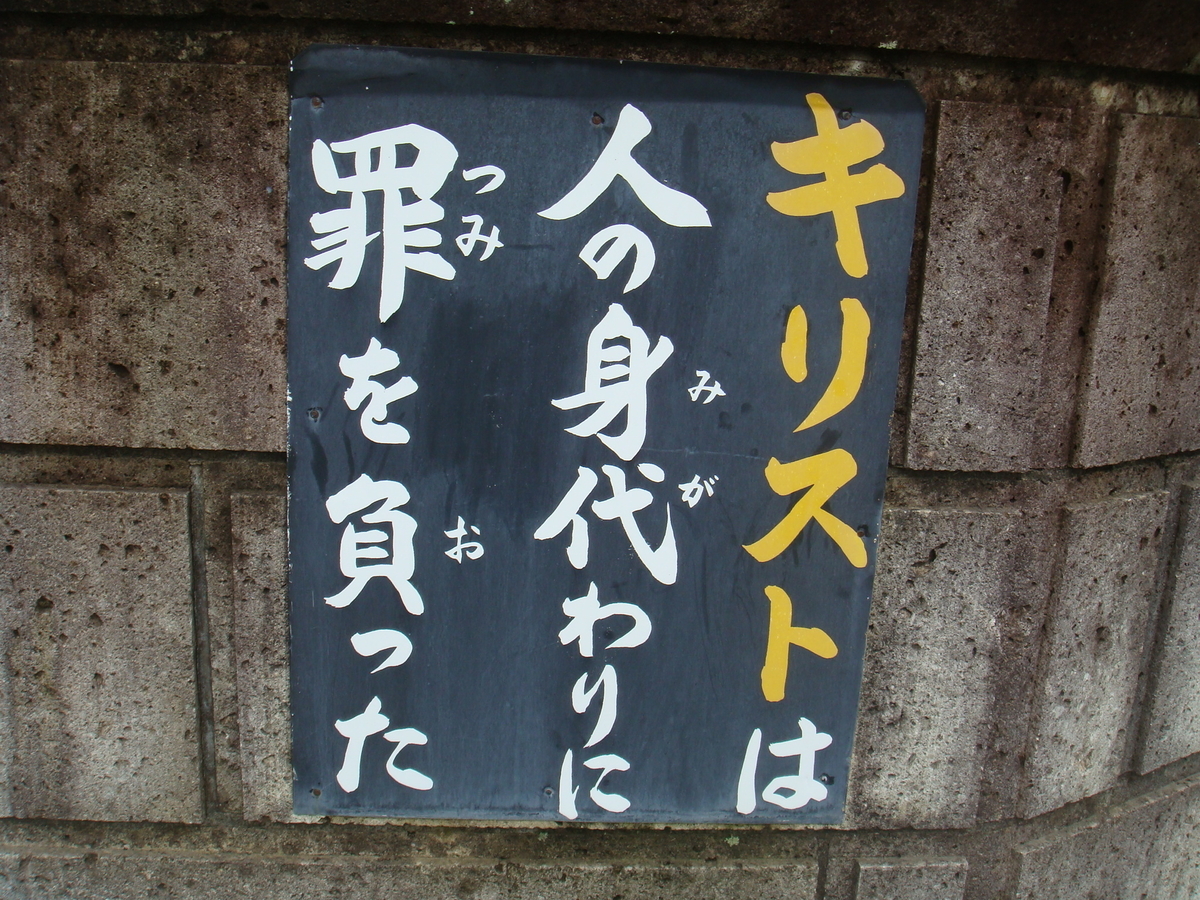 キリストは
人の身代わりに
みが
罪を負った
つみ
お